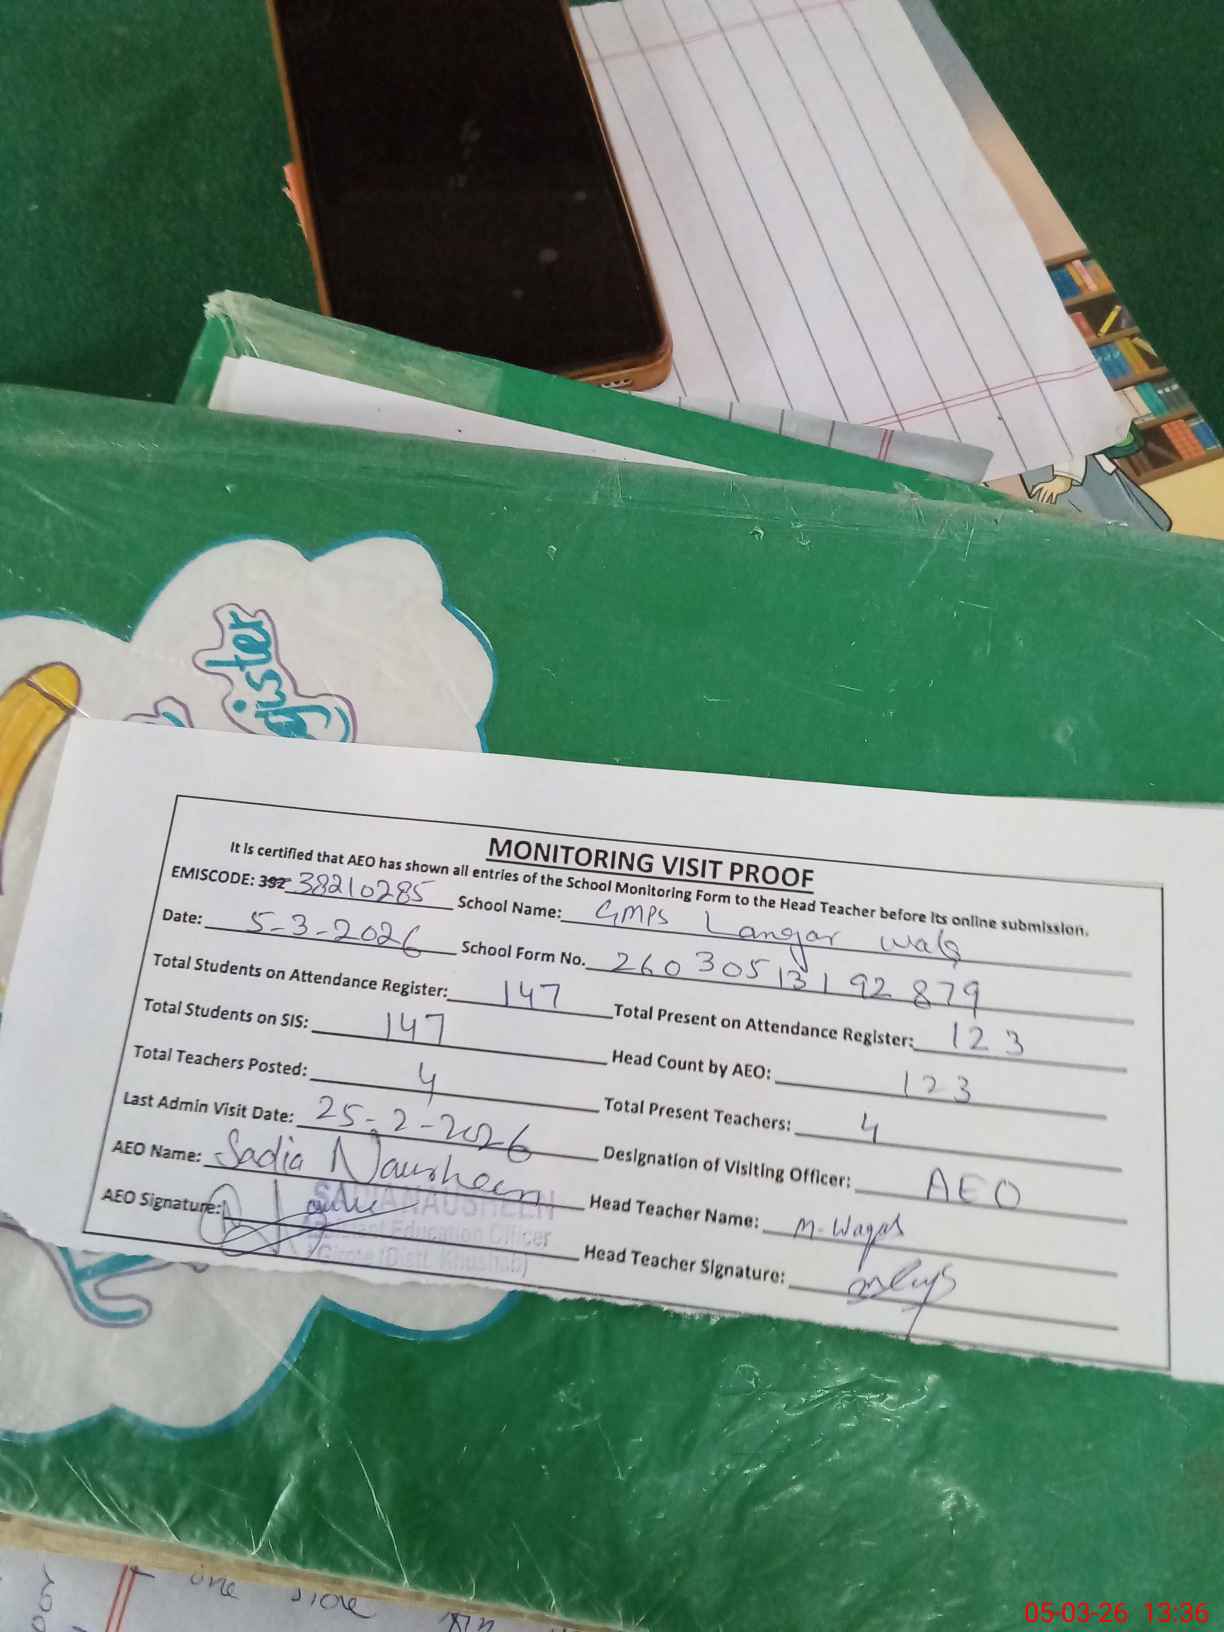 gister
MONITORING VISIT PROOF
It is certified that AEO has shown all entries of the School Monitoring Form to the Head Teacher before its online submission.
EMISCODE: 392 38210285 School Name: GMPS Langar wala
Date: 5-3-2026 School Form No. 26030513192879
Total Students on Attendance Register: 147 Total Present on Attendance Register: 123
Total Students on SIS: 147 Head Count by AEO: 123
Total Teachers Posted: 4 Total Present Teachers: 4
Last Admin Visit Date: 25-2-2026 Designation of Visiting Officer: AEO
AEO Name: Sadia Nausheen Head Teacher Name: M. Waqas
AEO Signature: Head Teacher Signature:
SADIA NAUSHEEN
Assistant Education Officer
Girote (Distt. Khushab)
one side
05-03-26 13:36